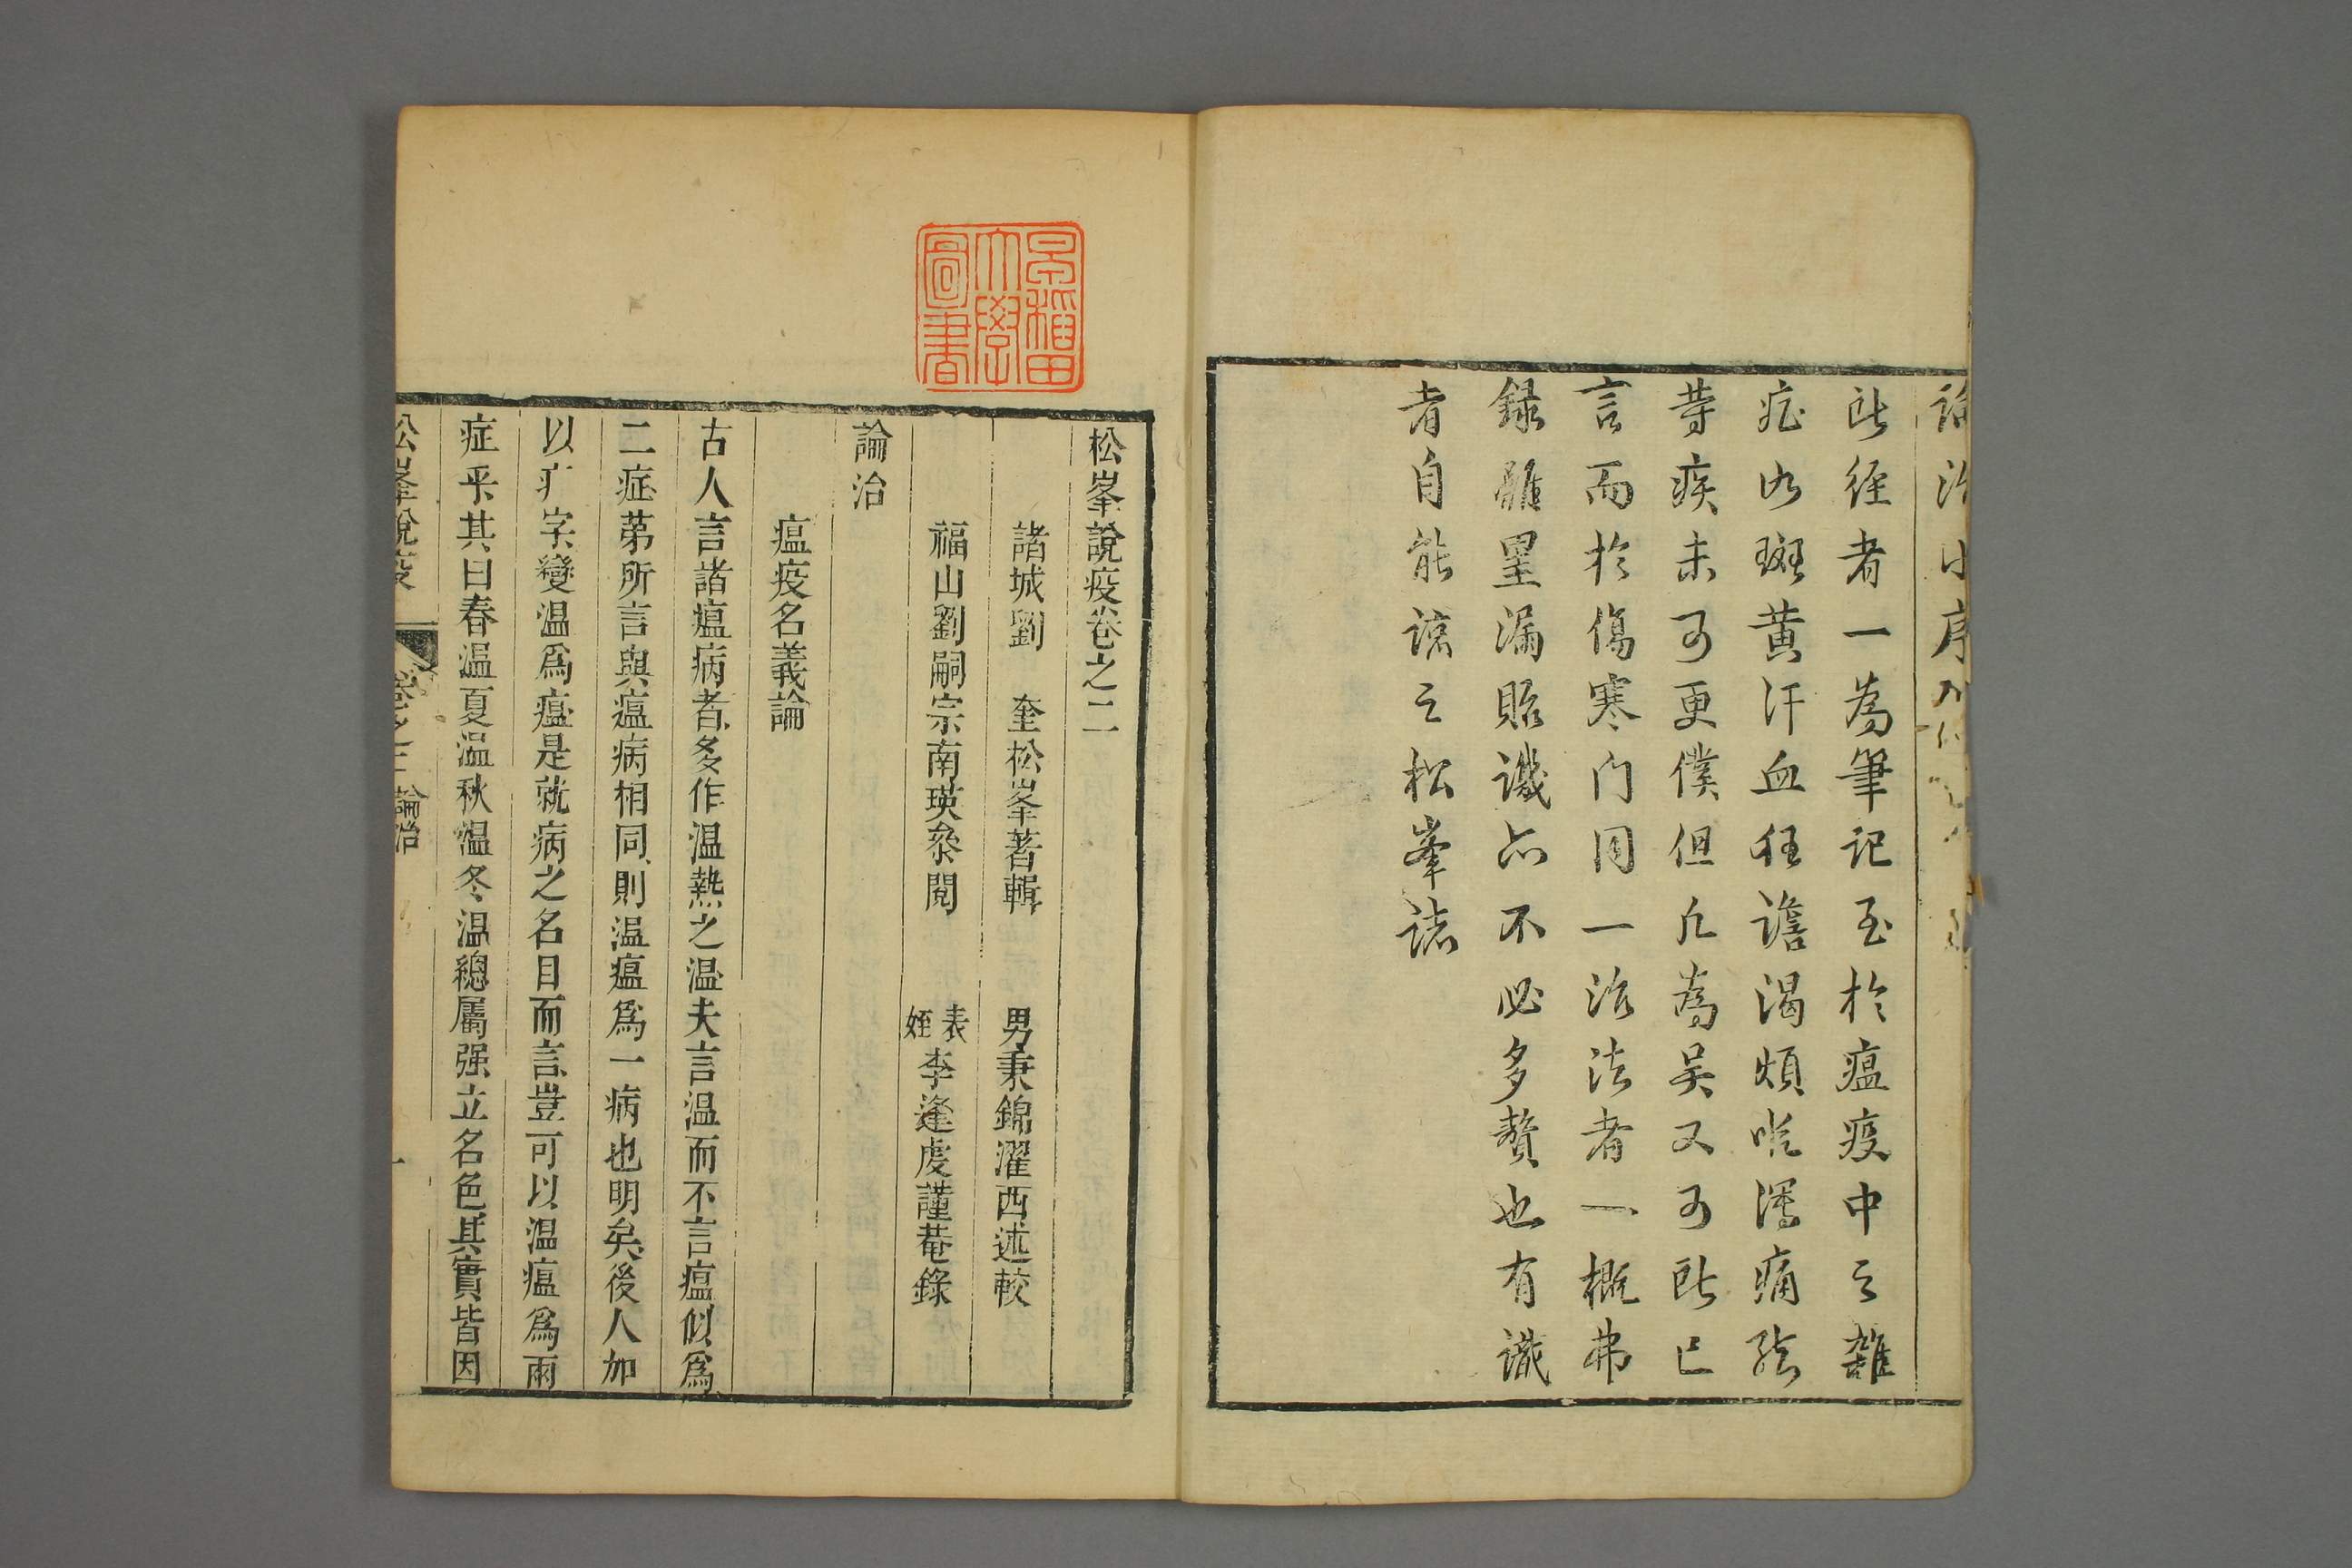 論治小序
此經者一為筆記至於瘟疫中之雜
症如斑黄汗血狂譫渴煩吐瀉痛
等疾未可更僕但凡為吴又可所已
言而於傷寒门同一治法者一概弗
録雖罣漏貽譏亦不必多贅也有識
者自能諒之松峯誌
早稲田
大學
圖書
松峯說疫卷之二
諸城劉 奎松峯著輯 男秉錦濯西述較
福山劉嗣宗南瑛叅閱 表姪李逢虔謹菴錄
論治
瘟疫名義論
古人言諸瘟病者多作温熱之温夫言温而不言瘟似爲
二症第所言與瘟病相同則温瘟爲一病也明矣後人加
以疒字變温爲瘟是就病之名目而言豈可以温瘟爲兩
症乎其曰春温夏温秋温冬温總屬强立名色其實皆因
松峯說疫 卷之二 論治 一